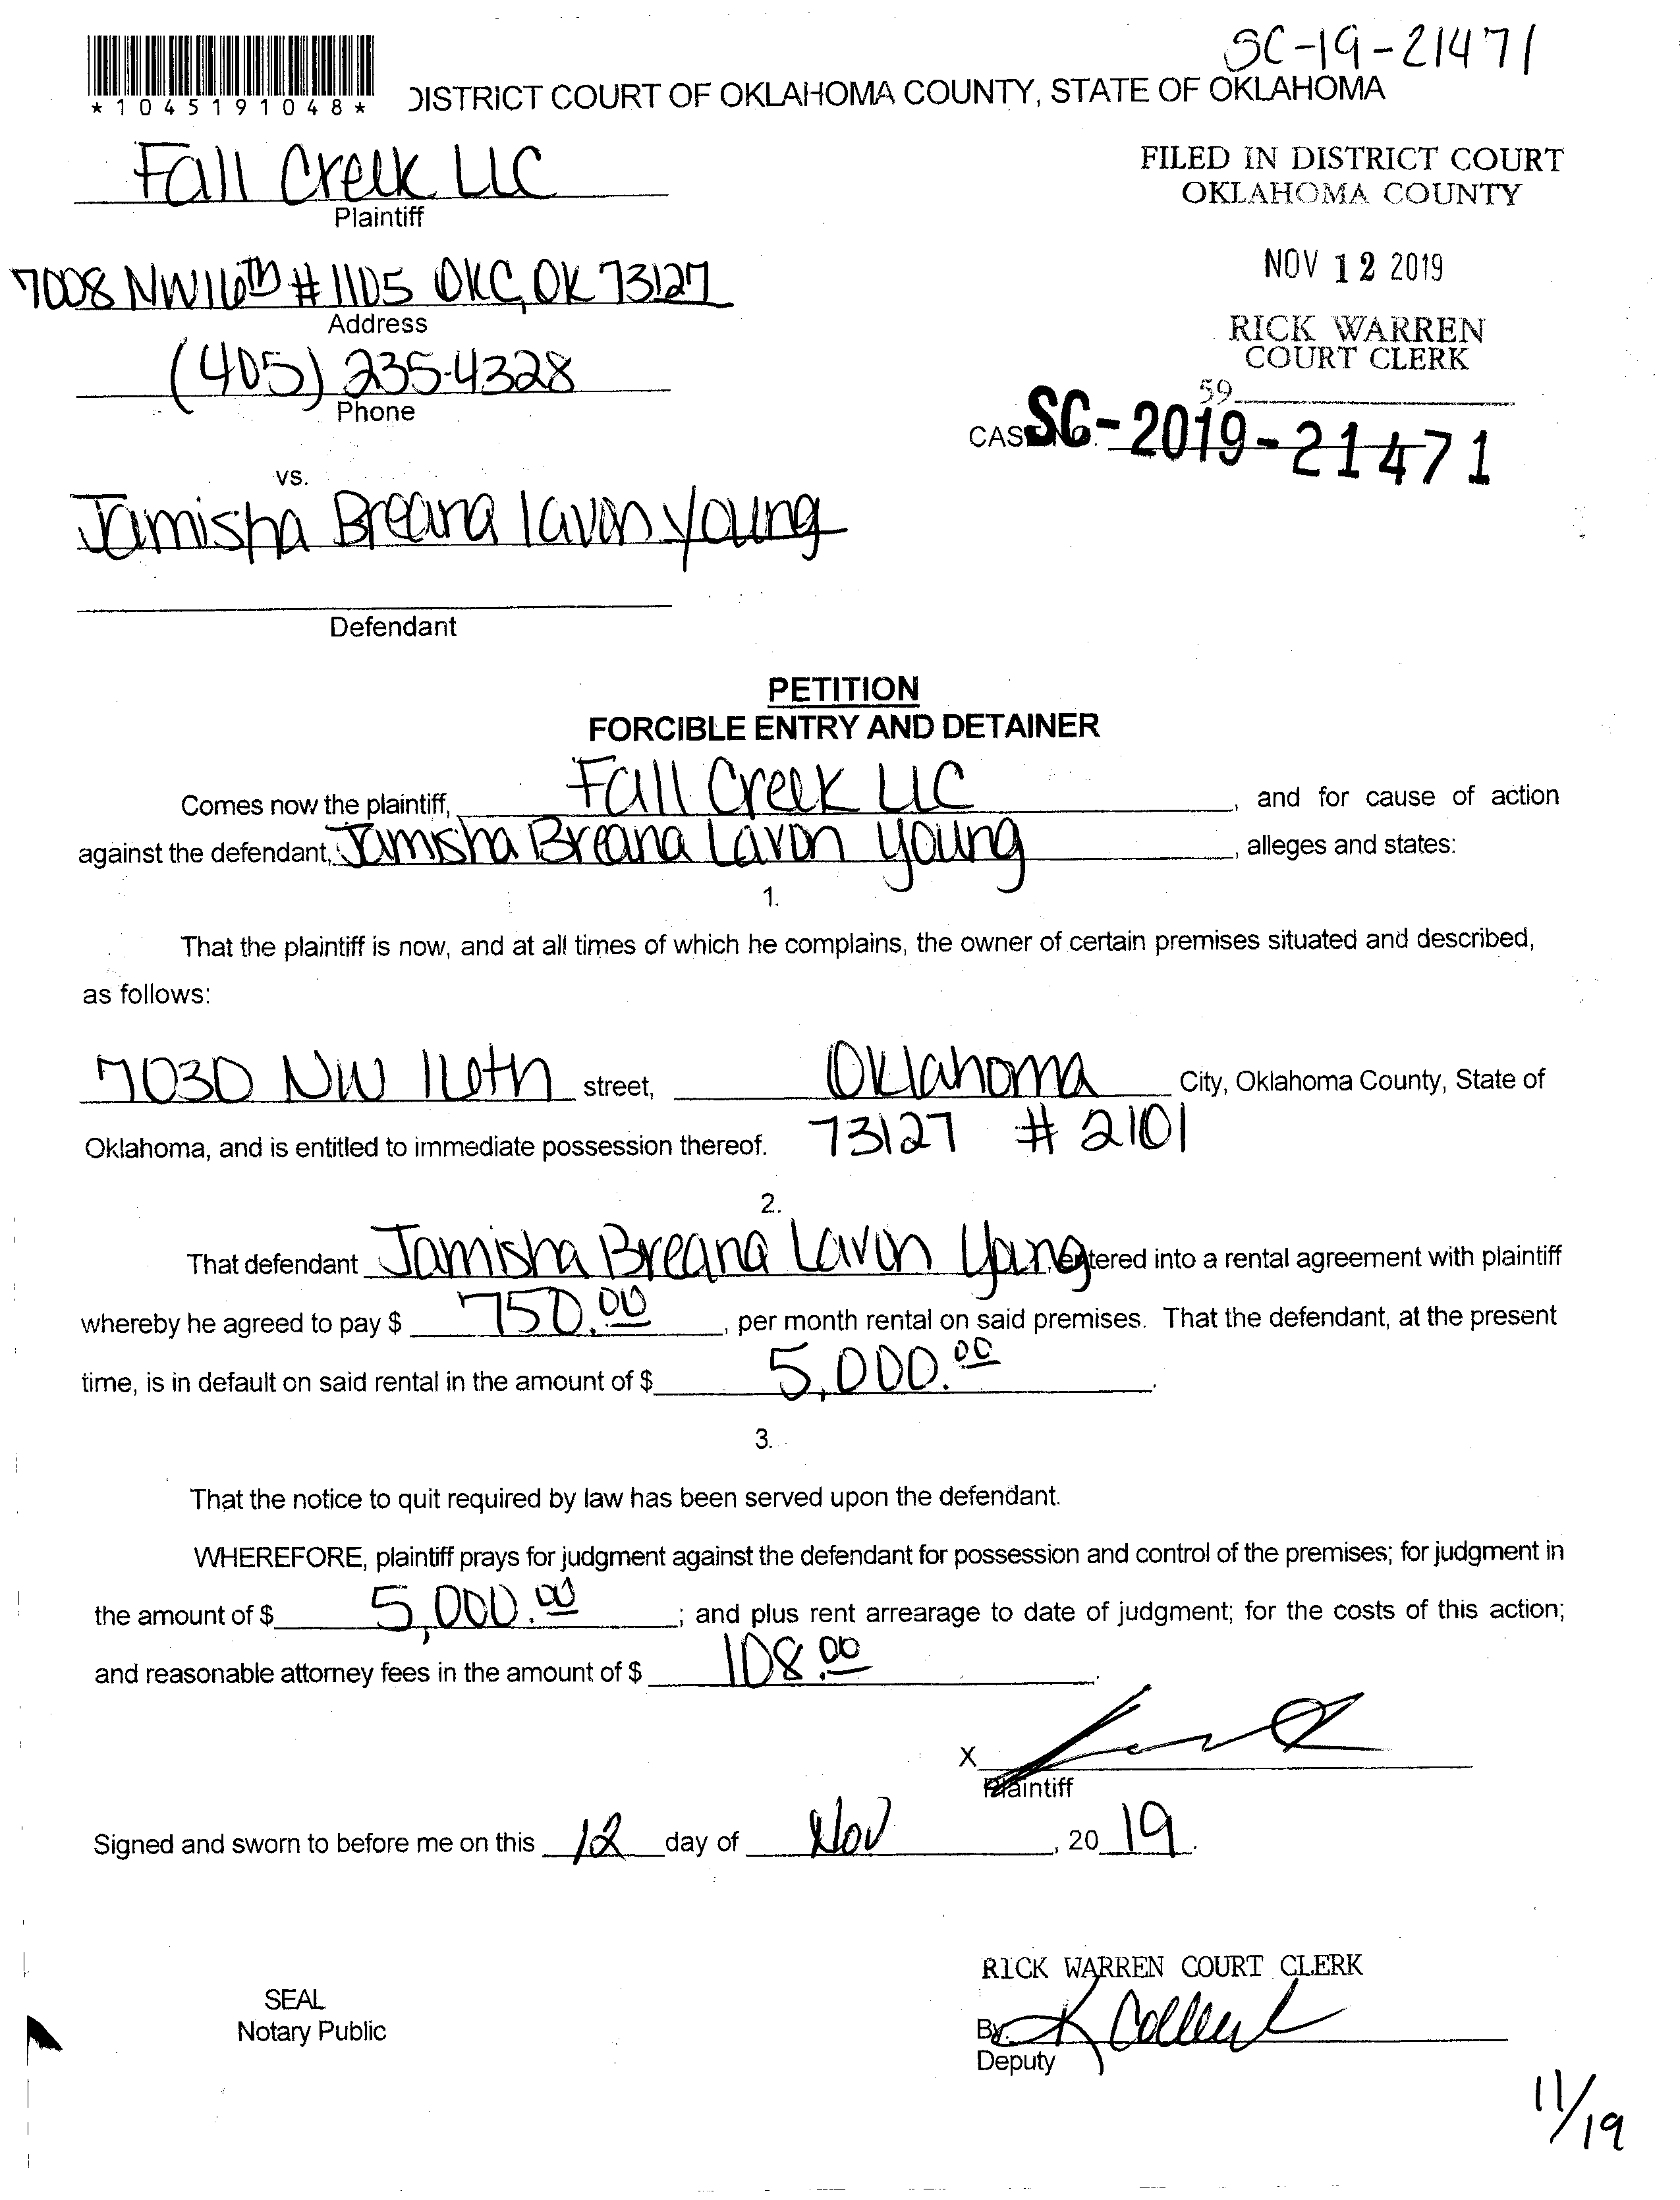 SC-19-21471
*1045191048*
DISTRICT COURT OF OKLAHOMA COUNTY, STATE OF OKLAHOMA
Fall Creek LLC
Plaintiff
FILED IN DISTRICT COURT
OKLAHOMA COUNTY
7008 NW 16TH # 1105 OKC, OK 73127
Address
NOV 12 2019
(405) 235-4328
Phone
RICK WARREN
COURT CLERK
59
CAS SC-2019-21471
vs.
Jamisha Breana lavon young
Defendant
PETITION
FORCIBLE ENTRY AND DETAINER
Comes now the plaintiff, Fall Creek LLC, and for cause of action
against the defendant, Jamisha Breana Lavon young, alleges and states:
1.
That the plaintiff is now, and at all times of which he complains, the owner of certain premises situated and described,
as follows:
7030 NW 16th street, Oklahoma City, Oklahoma County, State of
Oklahoma, and is entitled to immediate possession thereof. 73127 # 2101
2.
That defendant Jamisha Breana Lavon Young, entered into a rental agreement with plaintiff
whereby he agreed to pay $ 750.00, per month rental on said premises. That the defendant, at the present
time, is in default on said rental in the amount of $ 5,000.00.
3.
That the notice to quit required by law has been served upon the defendant.
WHEREFORE, plaintiff prays for judgment against the defendant for possession and control of the premises; for judgment in
the amount of $ 5,000.00; and plus rent arrearage to date of judgment; for the costs of this action;
and reasonable attorney fees in the amount of $ 108.00.
X
Plaintiff
Signed and sworn to before me on this 12 day of Nov, 20 19.
RICK WARREN COURT CLERK
SEAL
Notary Public
By:
Deputy
11/19